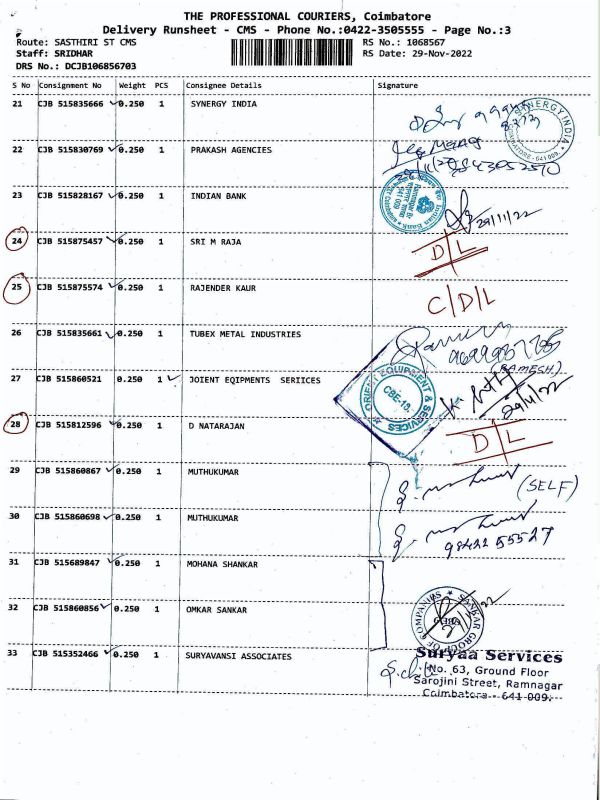 THE PROFESSIONAL COURIERS, Coimbatore
Delivery Runsheet - CMS - Phone No.:0422-3505555 - Page No.:3
Route: SASTHIRI ST CMS RS No.: 1068567
Staff: SRIDHAR RS Date: 29-Nov-2022
DRS No.: DCJB106856703
S No Consignment No Weight PCS Consignee Details Signature
21 CJB 515835666 0.250 1 SYNERGY INDIA
SYNERGY INDIA COIMBATORE - 641 009.
22 CJB 515830769 0.250 1 PRAKASH AGENCIES
23 CJB 515828167 0.250 1 INDIAN BANK
Indian Bank
29/11/22
24 CJB 515875457 0.250 1 SRI M RAJA
D/L
25 CJB 515875574 0.250 1 RAJENDER KAUR
C/D/L
26 CJB 515835661 0.250 1 TUBEX METAL INDUSTRIES
(RAMESH)
27 CJB 515860521 0.250 1 JOIENT EQIPMENTS SERIICES
ORIENT EQUIPMENT & SERVICES CBE-18.
29/11/22
28 CJB 515812596 0.250 1 D NATARAJAN
D/L
29 CJB 515860867 0.250 1 MUTHUKUMAR
(SELF)
30 CJB 515860698 0.250 1 MUTHUKUMAR
98422 55527
31 CJB 515689847 0.250 1 MOHANA SHANKAR
32 CJB 515860856 0.250 1 OMKAR SANKAR
SANKAR GROUP OF COMPANIES
33 CJB 515352466 0.250 1 SURYAVANSI ASSOCIATES
Suryaa Services
No. 63, Ground Floor
Sarojini Street, Ramnagar
Coimbatore - 641 009.